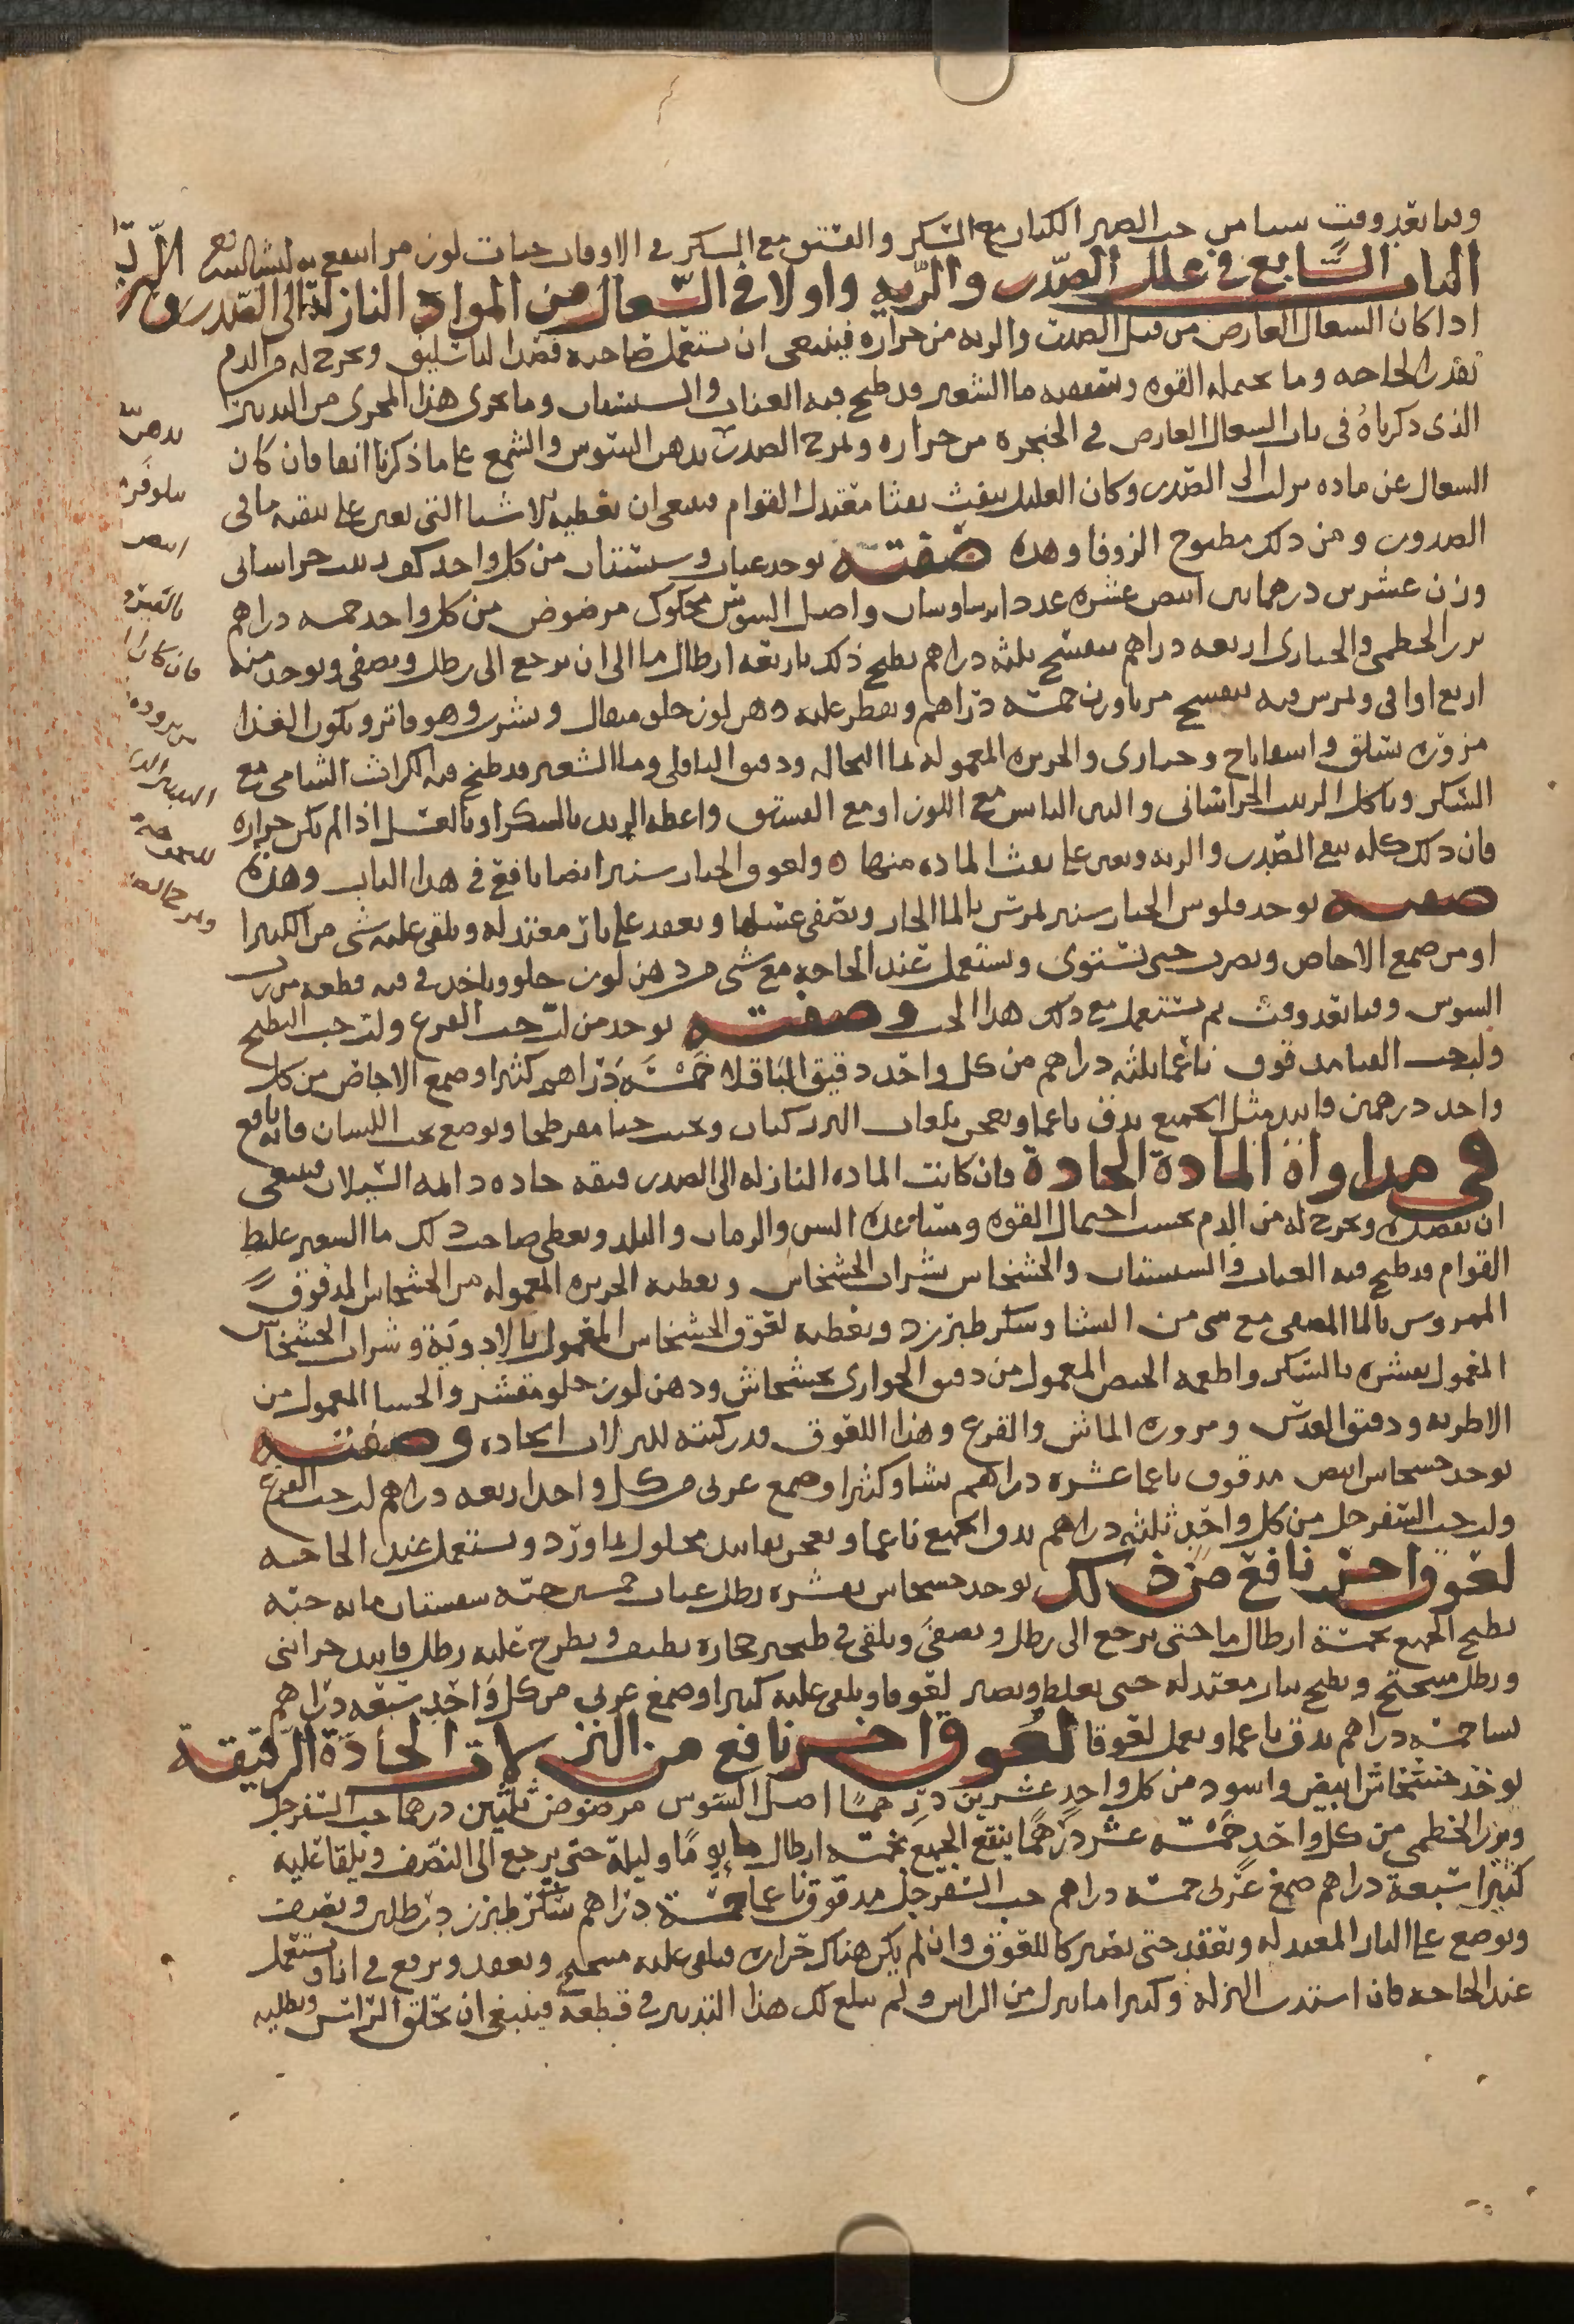 وقتا بعد وقت شيا من حب الصنوبر الكبار مع السكر والفستق مع السكر في الاوقات حبات لوز مر انتفع به ان شا الله تعالى
الباب السَّابع في علل الصّدر والرّيه واولا في السّعال من المواد النازلة الى الصّدر والرية
اذا كان السعال العارض من قبل الصدر والريه من حراره فينبغي ان يستعمل صاحبه فصد الباسليق ويخرج له من الدم
بقدر الحاجه وما يحتمله القوه ويسقيه ما الشعير قد طبخ فيه العناب والسبستان وما يجرى هذا المجرى من التدبير
الذى ذكرناهُ في باب السعال العارض في الحنجره من حراره ويمرخ الصدر بدهن السوس والشمع على ما ذكرنا انفا فان كان
السعال عن ماده تنزل الى الصّدر وكان العليل ينفث نفثا معتدل القوام فينبغي ان تعطيه الاشيا التي تعين على تنقيه ما في
الصدر ومن ذلك مطبوخ الزوفا وهذه صفته يوخذ عناب وسبستان من كل واحد كف زبيب خراساني
وزن عشرين درهما تين ابيض عشره عددا برساوشان واصل السوس محكوك مرضوض من كل واحد خمسه دراهم
بزر الخطمي والخبازى اربعه دراهم بنفسج ثلثه دراهم يطبخ ذلك باربعه ارطال ما الى ان يرجع الى رطل ويصفى ويوخذ منه
اربع اواقي ويمرس فيه بنفسج مربا وزن خمسة دراهم ويقطر عليه دهن لوز حلو مثقال ويشرب وهو فاتر ويكون الغذا
مزوّره سلق واسفاناخ وخبازى والحريره المعموله بما النخاله ودقيق الباقلي وما الشعير قد طبخ فيه الكراث الشامي مع
السّكر وياكل الزبيب الخراساني والتين اليابس مع اللوز او مع الفستق واعطه الزبد بالسكر او بالعسل اذا لم تكن حراره
فان ذلك كله ينقي الصّدر والريه ويعين على نفث الماده منها ه ولعوق الخيار شنبر ايضا نافع في هذا الباب وهذه
صفته يوخذ فلوس الخيار شنبر يمرس بالما الحار ويصفى عسلها ويعقد على نار معتدله ويلقى عليه شي من الكثيرا
او من صمغ الاجاص ويضرب حتى يستوى ويستعمل عند الحاجه مع شي من دهن لوز حلو وياخذ في فيه قطعه من رب
السوس وقتا بعد وقت ثم يستعمل مع ذلك هذا الحب وصفته يوخذ من لب حب القرع ولب حب البطيخ
ولب حب القثا مدقوق ناعما ثلثه دراهم من كل واحد دقيق الباقلا خَمْسَة دَرَاهم كثيرا وصمغ الاجاص من كل
واحد درهمين فانيد مثل الجميع يدق ناعما ويعجن بلعاب البزر كتان ويحبب حبا مفرطحا ويوضع تحت اللسان فانه نافع
في مداواة المادة الحادة فان كانت الماده النازله الى الصدر رقيقه حاده دايمه السّيلان فينبغي
ان تفصده ويخرج له من الدم بحسب احتمال القوه ومساعده السن والزمان والبلد ويعطى صاحب ذلك ما الشعير غليظ
القوام قد طبخ فيه العناب والسبستان والخشخاش بشراب الخشخاش ويعطيه الحريره المعموله من الخشخاش المدقوق
الممروس بالما المصفى مع شي من النشا وسكر طبرزد ويعطيه لعوق الخشخاش المعمول بالادويَة وشراب الخشخاش
المعمول بقشره بالسّكر واطعمه الخبيص المعمول من دقيق الحوارى بخشخاش ودهن لوز حلو مقشر والحسا المعمول من
الاطريه ودقيق العدس ومزوره الماش والقرع وهذا اللعوق قد ركبته للنزلات الحاده وصفته
يوخذ خشخاش ابيض مدقوق ناعما عشره دراهم نشا وكثيرا وصمغ عربي من كل واحد اربعه دراهم لب حب القرع
ولب حب السّفرجل من كل واحد ثلثه دراهم يدق الجميع ناعما ويعجن بفانيد محلول بماورد ويستعمل عند الحاجه
لعوق اخر نافع من ذلك يوخذ خشخاش بقشره رطل عناب خمسين حبّه سبستان مايه حبّه
يطبخ الجميع بخمسة ارطال ما حتى يرجع الى رطل ويصفى ويلقى في طنجير حجاره نظيف ويطرح عليه رطل فانيد خزايني
ورطل ميبختج ويطبخ بنار معتدله حتى يغلظ ويصير لعوقا ويلقى عليه كثيرا وصمغ عربي من كل واحد سبعه دراهم
نشا خمسه دراهم يدق ناعما ويعمل لعوقا لعوق اخر نافع من النزلات الحادَة الرّقيقة
يوخذ خشخاش ابيض واسود من كل واحد عشرين درهما اصل السّوس مرضوض ثلثين درهما حب السّفرجل
وبزر الخطمي من كل واحد خَمْسَه عشر درهمًا ينقع الجميع بخمسه ارطال ما يومًا وليلة حتى يرجع الى النصف ويلقا عليه
كثيرا سَبعة دراهم صمغ عربي خمسه دراهم حب السفرجل مدقوق ناعما خمسة دراهم سكر طبرزد رطلين ويضرب
ويوضع على النار المعتدله ويعقد حتى يصير كاللعوق وان لم يكن هناك حراره فيلقى عليه ميبختج ويعقد ويرفع في انا ويستعمل
عند الحاجه فان اشتدت النزله وكثيرا ما ينزل من الراس ولم يبلغ لك هذا التدبير في قطعه فينبغي ان تحلق الرّاس وتطليه
بدهن
نيلوفر
ابيض
فان كان